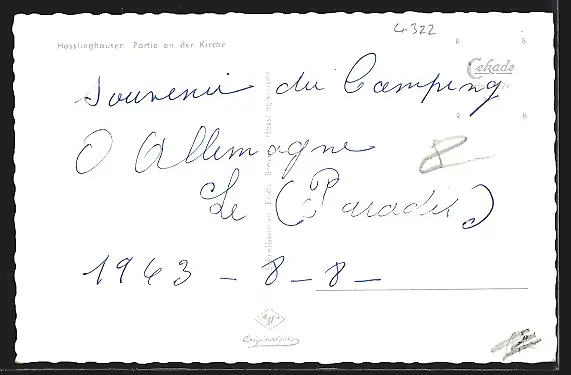 4322
Hasslinghausen Partie an der Kirche
R 8
Cekade
R 8
Souvenir du Camping
O Allemagne
Le (Paradis)
1963 - 8 - 8 -
Agfa
Originalfoto